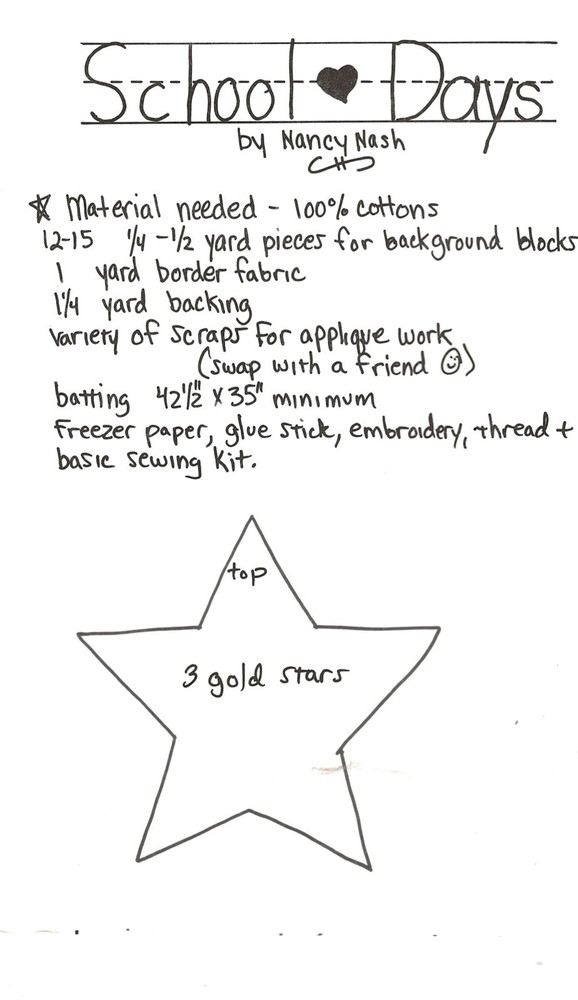 School ♥ Days
by Nancy Nash
☆ Material needed - 100% cottons
12-15 1/4 - 1/2 yard pieces for background blocks
1 yard border fabric
1 1/4 yard backing
variety of scraps for applique work
(swap with a friend ☺)
batting 42 1/2" X 35" minimum
Freezer paper, glue stick, embroidery, thread +
basic sewing kit.
top
3 gold stars